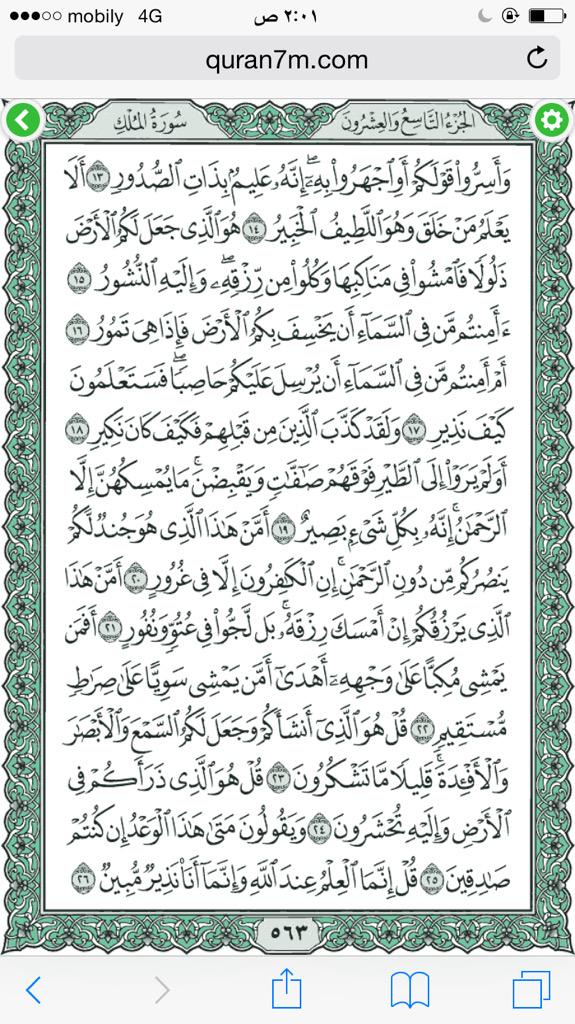 mobily 4G ٢:٠١ ص
quran7m.com
الجزء التاسع والعشرون سورة الملك
وَأَسِرُّوا۟ قَوْلَكُمْ أَوِ ٱجْهَرُوا۟ بِهِۦٓ ۖ إِنَّهُۥ عَلِيمٌۢ بِذَاتِ ٱلصُّدُورِ ١٣ أَلَا
يَعْلَمُ مَنْ خَلَقَ وَهُوَ ٱللَّطِيفُ ٱلْخَبِيرُ ١٤ هُوَ ٱلَّذِى جَعَلَ لَكُمُ ٱلْأَرْضَ
ذَلُولًا فَٱمْشُوا۟ فِى مَنَاكِبِهَا وَكُلُوا۟ مِن رِّزْقِهِۦ ۖ وَإِلَيْهِ ٱلنُّشُورُ ١٥
ءَأَمِنتُم مَّن فِى ٱلسَّمَآءِ أَن يَخْسِفَ بِكُمُ ٱلْأَرْضَ فَإِذَا هِىَ تَمُورُ ١٦
أَمْ أَمِنتُم مَّن فِى ٱلسَّمَآءِ أَن يُرْسِلَ عَلَيْكُمْ حَاصِبًا ۖ فَسَتَعْلَمُونَ
كَيْفَ نَذِيرِ ١٧ وَلَقَدْ كَذَّبَ ٱلَّذِينَ مِن قَبْلِهِمْ فَكَيْفَ كَانَ نَكِيرِ ١٨
أَوَلَمْ يَرَوْا۟ إِلَى ٱلطَّيْرِ فَوْقَهُمْ صَٰٓفَّٰتٍ وَيَقْبِضْنَ ۚ مَا يُمْسِكُهُنَّ إِلَّا
ٱلرَّحْمَٰنُ ۚ إِنَّهُۥ بِكُلِّ شَىْءٍۭ بَصِيرٌ ١٩ أَمَّنْ هَٰذَا ٱلَّذِى هُوَ جُندٌ لَّكُمْ
يَنصُرُكُم مِّن دُونِ ٱلرَّحْمَٰنِ ۚ إِنِ ٱلْكَٰفِرُونَ إِلَّا فِى غُرُورٍ ٢٠ أَمَّنْ هَٰذَا
ٱلَّذِى يَرْزُقُكُمْ إِنْ أَمْسَكَ رِزْقَهُۥ ۚ بَل لَّجُّوا۟ فِى عُتُوٍّ وَنُفُورٍ ٢١ أَفَمَن
يَمْشِى مُكِبًّا عَلَىٰ وَجْهِهِۦٓ أَهْدَىٰٓ أَمَّن يَمْشِى سَوِيًّا عَلَىٰ صِرَٰطٍ
مُّسْتَقِيمٍ ٢٢ قُلْ هُوَ ٱلَّذِىٓ أَنشَأَكُمْ وَجَعَلَ لَكُمُ ٱلسَّمْعَ وَٱلْأَبْصَٰرَ
وَٱلْأَفْـِٔدَةَ ۖ قَلِيلًا مَّا تَشْكُرُونَ ٢٣ قُلْ هُوَ ٱلَّذِى ذَرَأَكُمْ فِى
ٱلْأَرْضِ وَإِلَيْهِ تُحْشَرُونَ ٢٤ وَيَقُولُونَ مَتَىٰ هَٰذَا ٱلْوَعْدُ إِن كُنتُمْ
صَٰدِقِينَ ٢٥ قُلْ إِنَّمَا ٱلْعِلْمُ عِندَ ٱللَّهِ وَإِنَّمَآ أَنَا۠ نَذِيرٌ مُّبِينٌ ٢٦
٥٦٣